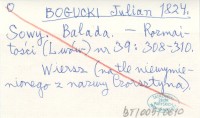 BOGUCKI Julian 1824.
Sowy: Balada. – Rozmai-
tości (Lwów) nr 39: 308-310.
Wiersz (na tle niewymie-
nionego z nazwy